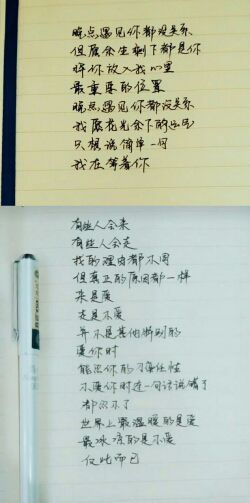 晚点遇见你都没关系
但愿余生剩下都是你
将你放入我心里
最重要的位置
晚点遇见你都没关系
我愿花光余下的运气
只想说简单一句
我在等着你
有些人会来
有些人会走
我的理由都不同
但真正的原因都一样
来是爱
走是不爱
并不是其他特别的
爱你时
能忍你的习惯任性
不爱你时连一句话说错了
都忍不了
世界上最温暖的是爱
最冰凉的是不爱
仅此而已